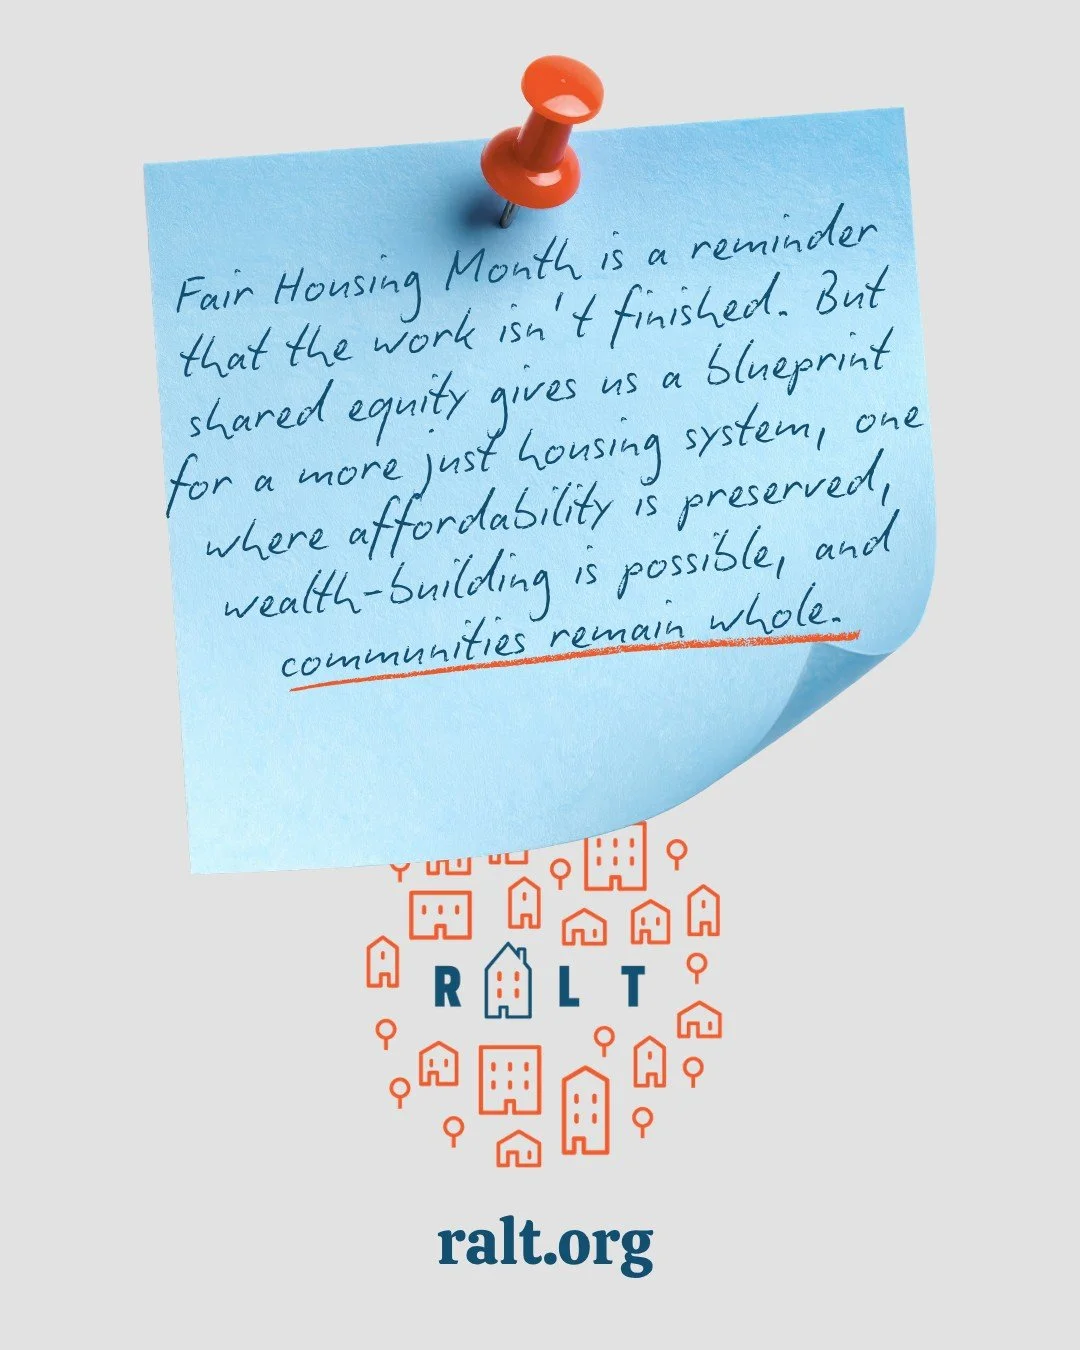 Fair Housing Month is a reminder
that the work isn't finished. But
shared equity gives us a blueprint
for a more just housing system, one
where affordability is preserved,
wealth-building is possible, and
communities remain whole.
RALT
ralt.org